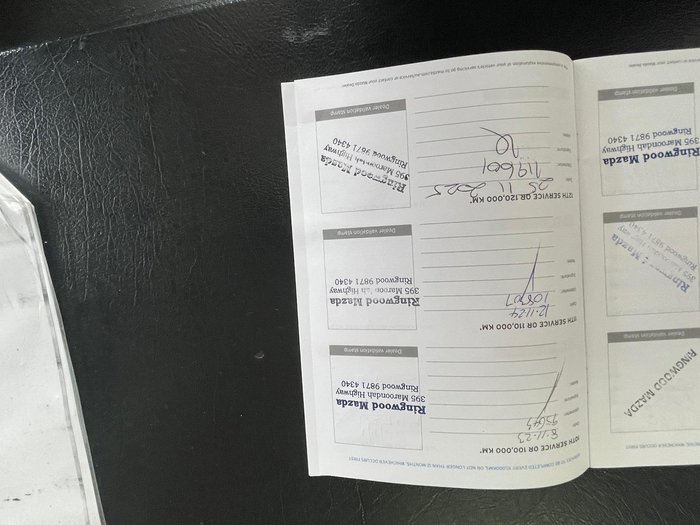 10TH SERVICE OR 100,000 KM*
Date
8.11.23
Odometer
95643
Signature
Notes
Dealer validation stamp
Ringwood Mazda
395 Maroondah Highway
Ringwood 9871 4340
11TH SERVICE OR 110,000 KM*
Date
12.11.24
Odometer
Signature
Notes
Dealer validation stamp
Ringwood Mazda
395 Maroondah Highway
Ringwood 9871 4340
12TH SERVICE OR 120,000 KM*
Date
25 11 2025
Odometer
119601
Signature
Notes
Dealer validation stamp
Ringwood Mazda
395 Maroondah Highway
Ringwood 9871 4340
RINGWOOD MAZDA
Dealer validation stamp
395 Maroondah Highway
Ringwood 9871 4340
Dealer validation stamp
Ringwood Mazda
395 Maroondah Highway
Ringwood 9871 4340
Dealer validation stamp